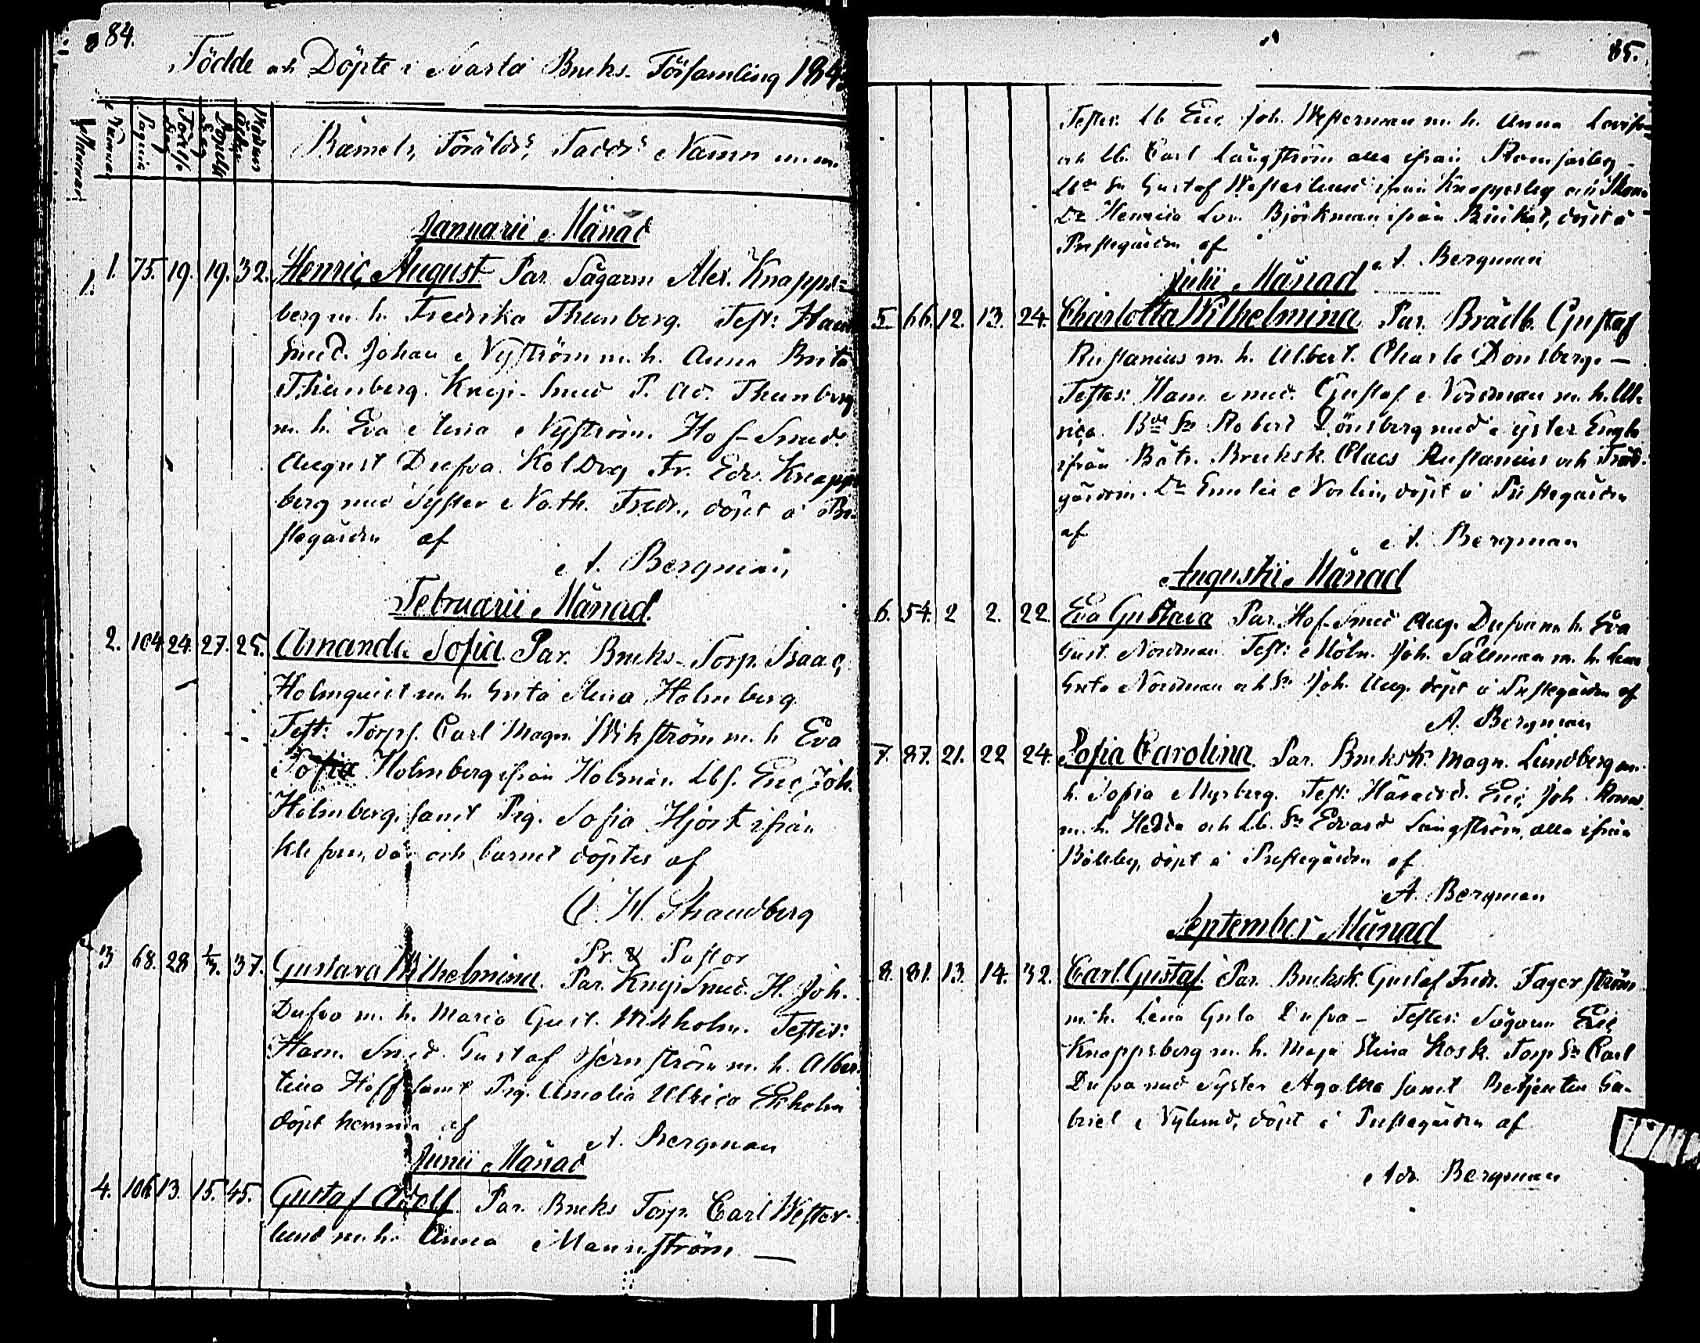 84.
Födde och Döpte i Svarta Bruks Församling 184
Nummer
Pagina
Födelse Dag
Döpelse Dag
Modrens ålder
Barnets, Föräldr.s, Fadd.s Namn m.m.
Januarii Månad
1. 75. 19. 19. 32. Henric August. Par. Sågaren Alex. Knapps=
berg m. h. Fredrika Thunberg. Test: Ham
Smed. Johan Nyström m. h. Anna Brita
Thunberg. Knip. Smed P. Ad. Thunberg
m. h. Eva Lena Nyström. Hof-Smed.
August Dufva. Kol Drg Fr. Edv. Knapps
berg med Syster Nath. Fredr., döpt i Pre-
stegården af
A. Bergman
Februarii Månad.
2. 104. 24. 27. 25. Amanda Sofia. Par. Bruks-Torp. Isaac
Holmquist m. h. Greta Lena Holmberg.
Test: Torp. Carl Magn. Wikström m. h. Eva
Sofia Holmberg ifrån Holmnäs. Lbf. Eric Joh.
Holmberg, samt Pig. Sofia Hjort ifrån
där och barnet döptes af
C. H. Strandberg
Pr. & Pastor
3 68. 28 1/3. 37. Gustava Wilhelmina. Par. Knip Smed. H. Joh.
Dufva m. h. Maria Gust. Wikholm. Testes:
Ham. Smed. Gustaf Stjernström m. h. Alber
tina Hoff samt Pig. Amalia Ulrica Ekholm
döpt hemma af
A. Bergman
Junii Månad
4. 106. 13. 15. 45. Gustaf Adolf. Par. Bruks Torp. Carl Wester-
lund m. h. Anna Mannström —
85.
Testes: Lb Eric Joh. Westerman m. h. Anna
och Lb. Carl Långström alla ifrån
Gustaf Westerlund ifrån Knapperby och
Henrica Lov. Björkman ifrån Bruket, döpt i
Prestegården af
A. Bergman
Julii Månad
5. 66. 12. 13. 24. Charlotta Wilhelmina. Par. Brädb. Gustaf
Rustanius m. h. Albert. Charl. Dönsberg. —
Testes: Ham. smed. Gustaf Nordman m. h. Ul-
rica. Robert Dönsberg med Syster
ifrån Bruksk. Claes Rustanius och Träd-
gårdsm. Dr Emelie Norlin, döpt i Prestegården
af
A. Bergman
Augustii Månad
6. 54. 2 2. 22. Eva Gustava Par. Hof-Smed Aug. Dufva m. h. Eva
Gust. Nordman. Test: Möln. Joh. Sällman m. h. Lena
Greta Nordman och Sn Joh. Aug. döpt i Prestegården af
A. Bergman
7. 87. 21. 22 24. Sofia Carolina. Par. Bruksk. Magn. Lundberg m.
h. Sofia Myrberg. Test: Häradsd. Eric Joh.
m. h. Hedda och Lb. Sn Edvard Långström, alla ifrån
Bålleby, döpt i Prestegården af
A. Bergman
September Månad
8. 81. 13. 14. 32. Carl Gustaf. Par. Bruksk. Gustaf Fredr. Fagerström
m. h. Lena Greta Dufva – Testes: Sågaren Eric
Knappsberg m. h. Maja Stina Kosk. Torp Sn Carl
Dufva med Syster Agatha samt Betjenten Ga-
briel Nylund, döpt i Prestegården af
Adr. Bergman